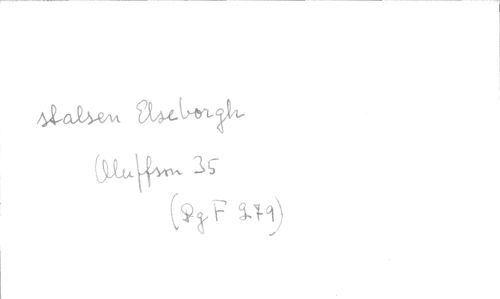 stalsen Elseborgh
Oluffson 35
(Pg F 279)